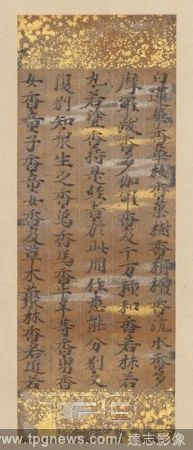 白蓮華香華樹香菓樹香栴檀香沉水香多
摩羅跋香多伽羅香及千万種和香若抹若
丸若塗香持是經者於此間住悉能分別又
復別知衆生之香象香馬香牛羊等香男香
女香童子香童女香及草木叢林香若近若
www.tpgnews.com/達志影像